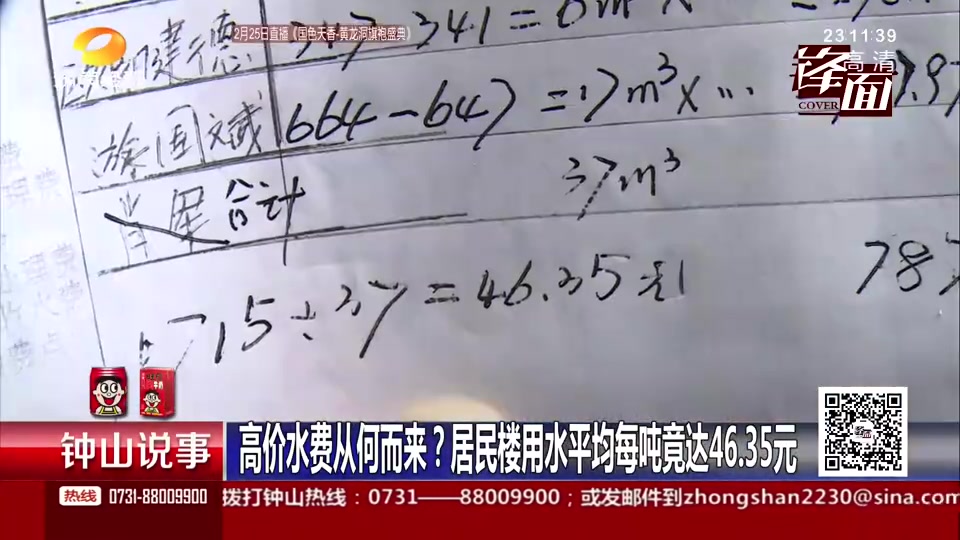 2月25日直播《国色天香-黄龙洞旗袍盛典》
23:11:39
高清
锋面
COVER
建德 347-341=6m³
旅国斌 664-647=17m³×…
合计 37m³
715÷37=46.35元/
787
钟山说事
高价水费从何而来？居民楼用水平均每吨竟达46.35元
热线 0731-88009900 拨打钟山热线：0731——88009900；或发邮件到zhongshan2230@sina.com